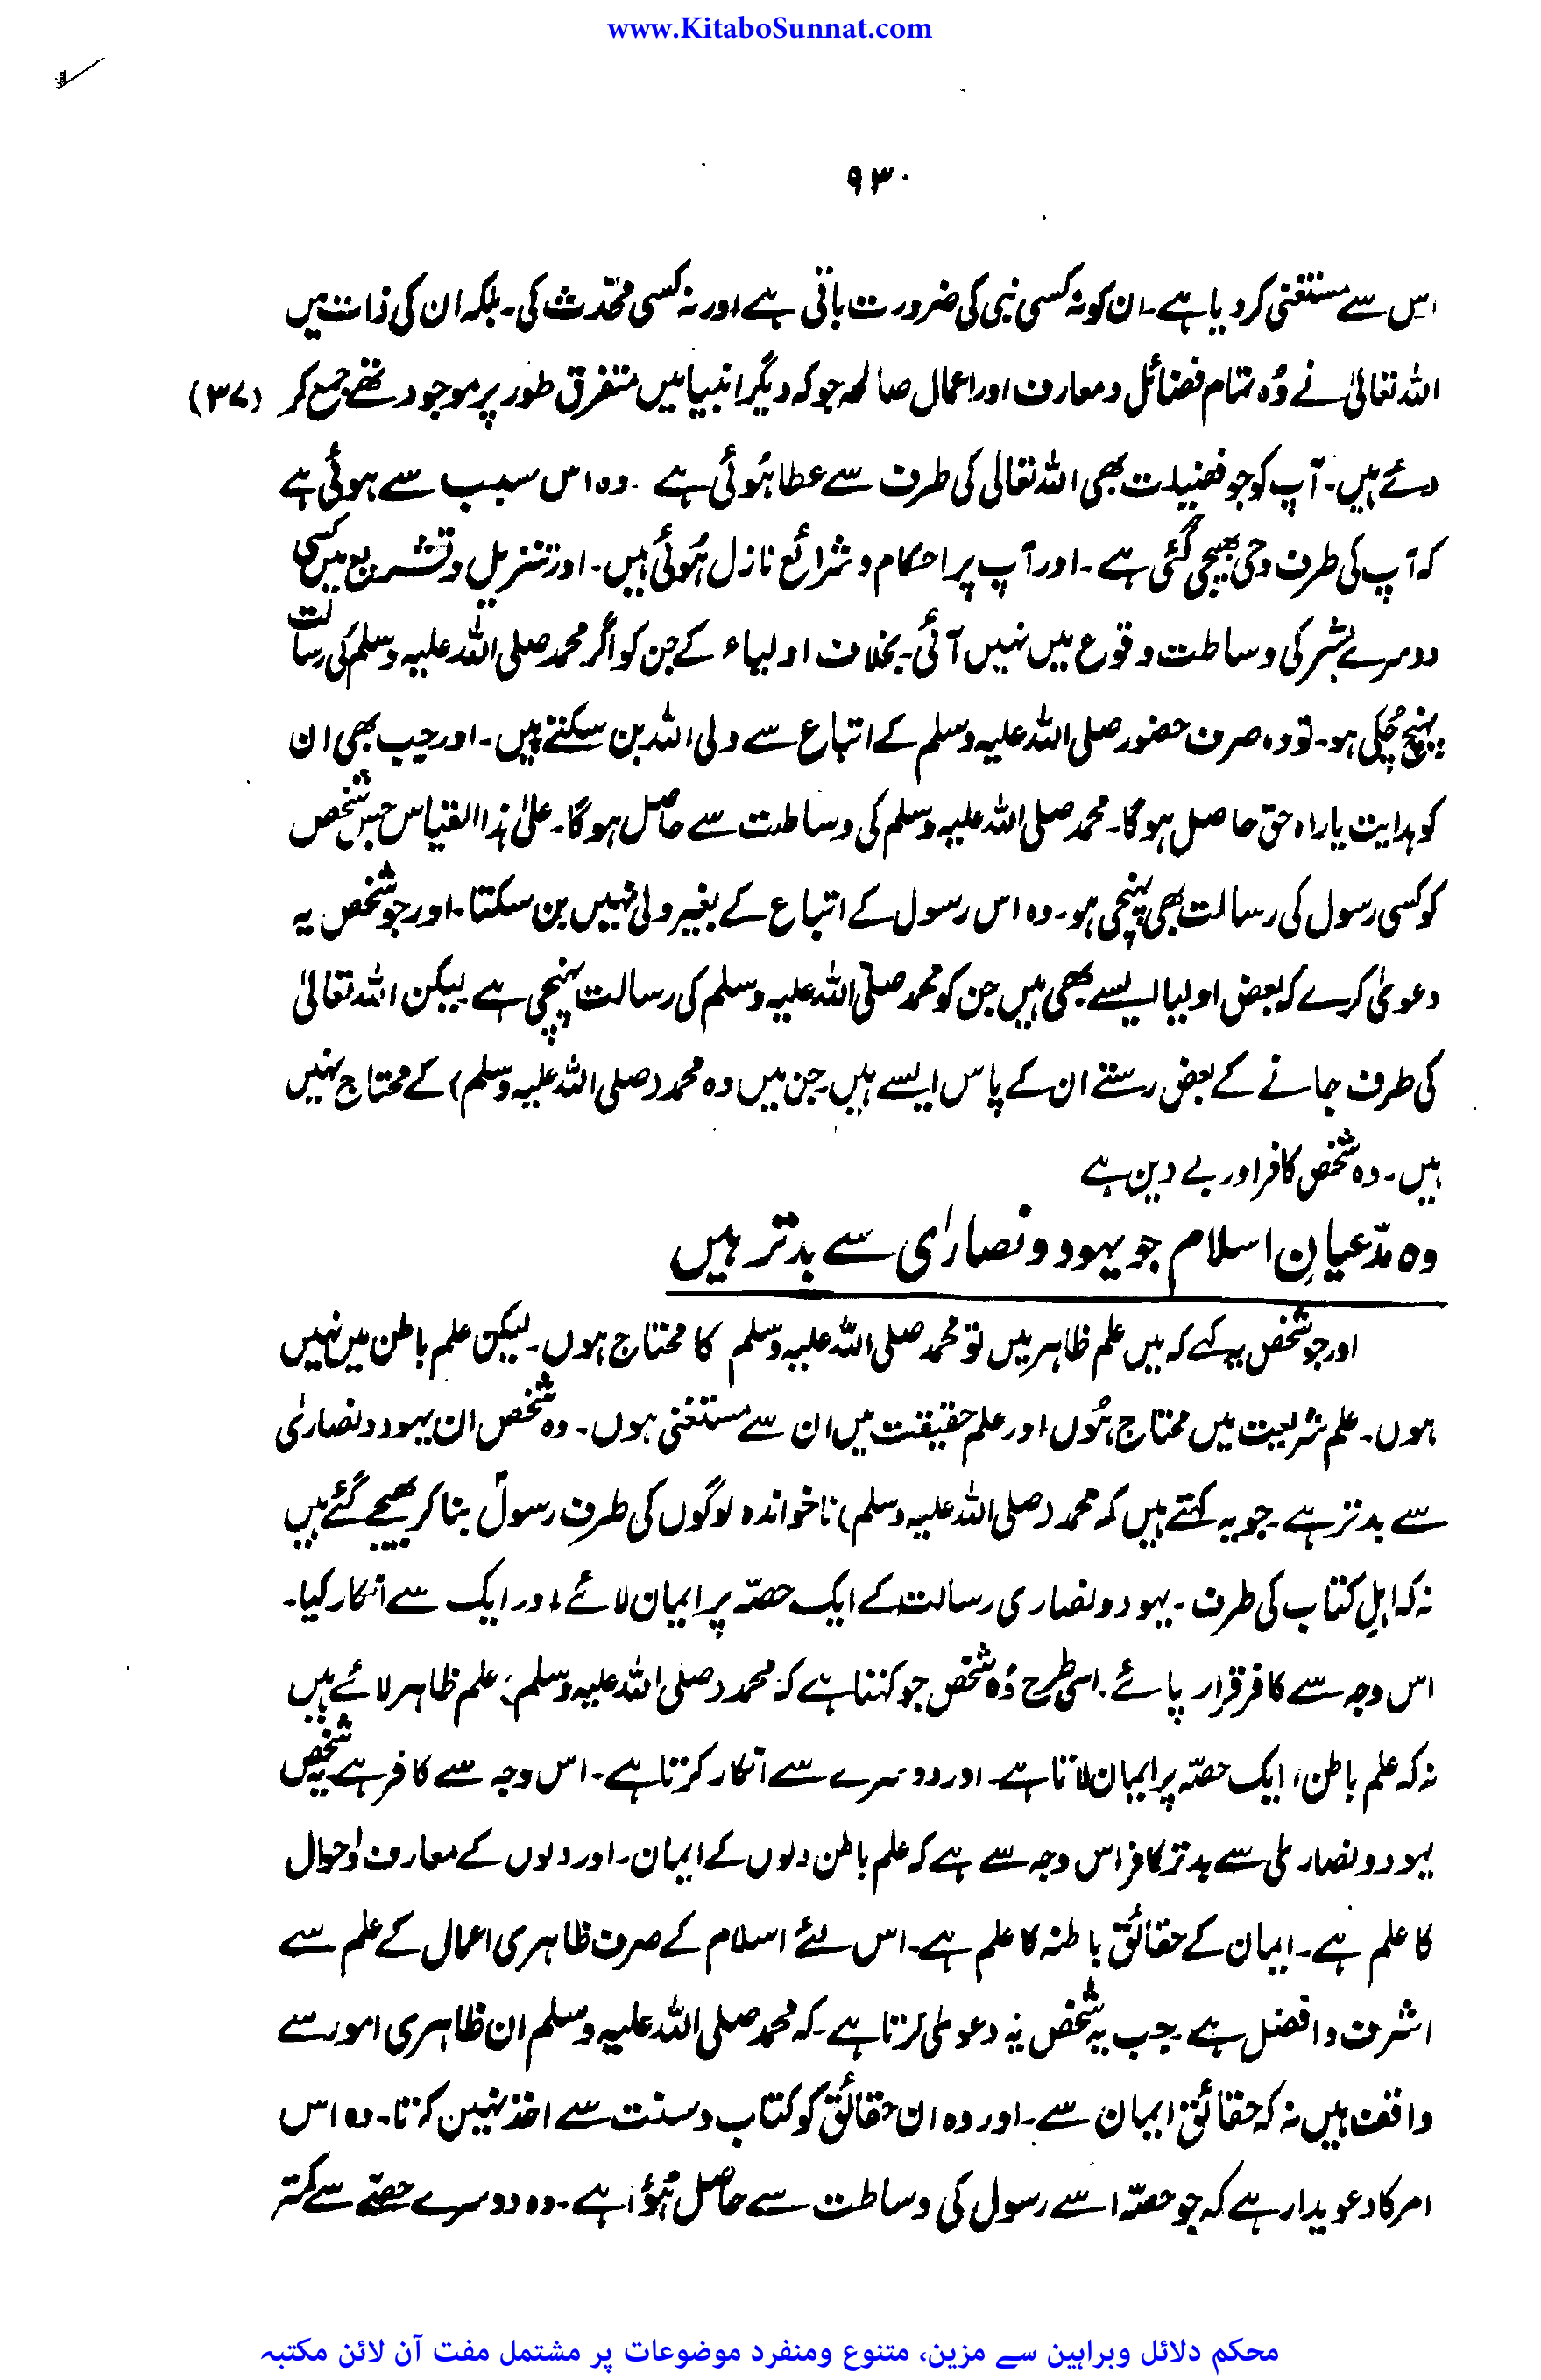 www.KitaboSunnat.com
۹۳۰
اس سے مستغنی کر دیا ہے۔ ان کو نہ کسی نبی کی ضرورت باقی ہے اور نہ کسی محدّث کی۔ بلکہ ان کی ذات میں
اللہ تعالیٰ نے وُہ تمام فضائل و معارف اور اعمال صالحہ جو کہ دیگر انبیا میں متفرق طور پر موجود تھے جمع کر (۳۷)
دئے ہیں۔ آپ کو جو فضیلت بھی اللہ تعالی کی طرف سے عطا ہُوئی ہے۔ وہ اس سبب سے ہوئی ہے
کہ آپ کی طرف وحی بھیجی گئی ہے۔ اور آپ پر احکام و شرائع نازل ہُوئی ہیں۔ اور تنزیل و تشریع میں کسی
دوسرے بشر کی وساطت وقوع میں نہیں آئی۔ بخلاف اولیاء کے جن کو اگر محمد صلی اللہ علیہ وسلم کی رسالت
پہنچ چکی ہو۔ تو وہ صرف حضور صلی اللہ علیہ وسلم کے اتباع سے ولی اللہ بن سکتے ہیں۔ اور جب بھی ان
کو ہدایت یا راہ حق حاصل ہوگا۔ محمد صلی اللہ علیہ وسلم کی وساطت سے حاصل ہوگا۔ علیٰ ہذا القیاس جس شخص
کو کسی رسول کی رسالت بھی پہنچی ہو۔ وہ اس رسول کے اتباع کے بغیر ولی نہیں بن سکتا۔ اور جو شخص یہ
دعویٰ کرے کہ بعض اولیا ایسے بھی ہیں جن کو محمد صلّی اللہ علیہ وسلم کی رسالت پہنچی ہے لیکن اللہ تعالیٰ
کی طرف جانے کے بعض رستے ان کے پاس ایسے ہیں۔ جن میں وہ محمد (صلی اللہ علیہ وسلم) کے محتاج نہیں
ہیں۔ وہ شخص کافر اور بے دین ہے
وہ مدّعیانِ اسلام جو یہود و نصارٰی سے بدتر ہیں
اور جو شخص یہ کہے کہ میں علم ظاہر میں تو محمد صلی اللہ علیہ وسلم کا محتاج ہوں۔ لیکن علم باطن میں نہیں
ہوں۔ علم شریعت میں محتاج ہُوں اور علم حقیقت میں ان سے مستغنی ہوں۔ وہ شخص ان یہود و نصاریٰ
سے بدتر ہے۔ جو یہ کہتے ہیں کہ محمد (صلی اللہ علیہ وسلم) ناخواندہ لوگوں کی طرف رسول بنا کر بھیجے گئے ہیں
نہ کہ اہل کتاب کی طرف۔ یہود و نصاری رسالت کے ایک حصّہ پر ایمان لائے اور ایک سے انکار کیا۔
اس وجہ سے کافر قرار پائے۔ اسی طرح وُہ شخص جو کہتا ہے کہ محمد (صلی اللہ علیہ وسلم) علم ظاہر لائے ہیں
نہ کہ علم باطن، ایک حصّہ پر ایمان لاتا ہے۔ اور دوسرے سے انکار کرتا ہے۔ اس وجہ سے کافر ہے یہ شخص
یہود و نصاریٰ سے بدتر کافر اس وجہ سے ہے کہ علم باطن دلوں کے ایمان۔ اور دلوں کے معارف و احوال
کا علم ہے۔ ایمان کے حقائق باطنہ کا علم ہے۔ اس لئے اسلام کے صرف ظاہری اعمال کے علم سے
اشرف و افضل ہے۔ جب یہ شخص یہ دعویٰ کرتا ہے۔ کہ محمد صلی اللہ علیہ وسلم ان ظاہری امور سے
واقف ہیں نہ کہ حقائق ایمان سے۔ اور وہ ان حقائق کو کتاب و سنت سے اخذ نہیں کرتا۔ وہ اس
امر کا دعویدار ہے کہ جو حصّہ اسے رسول کی وساطت سے حاصل ہُؤا ہے۔ وہ دوسرے حصّے سے کمتر
محکم دلائل وبراہین سے مزین، متنوع ومنفرد موضوعات پر مشتمل مفت آن لائن مکتبہ